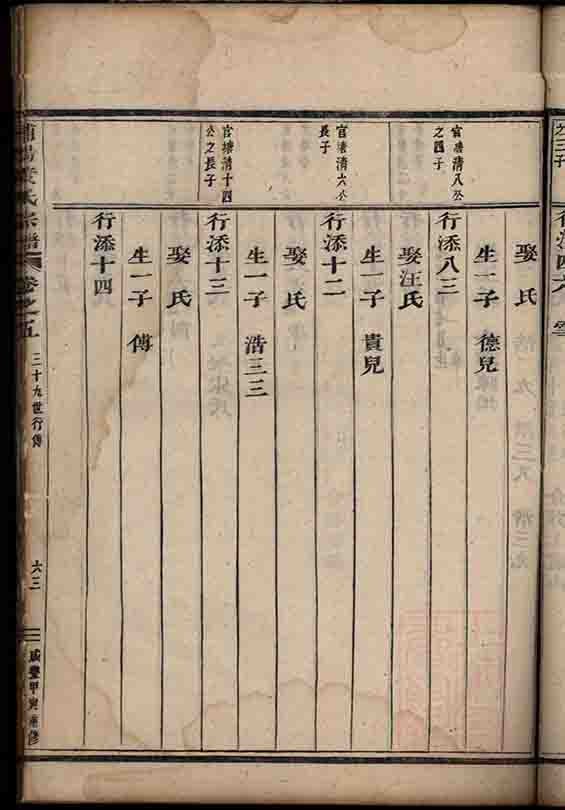 之三子
娶 氏
生一子 德兒
官塘清八公
之四子
行添八三
娶汪氏
生一子 貴兒
官塘清六公
長子
行添十二
娶 氏
生一子 浩三三
官塘清十四
公之長子
行添十三
娶 氏
生一子 傅
行添十四
氏宗譜 卷之五 三十九世行傳 六三 咸豐甲寅重修